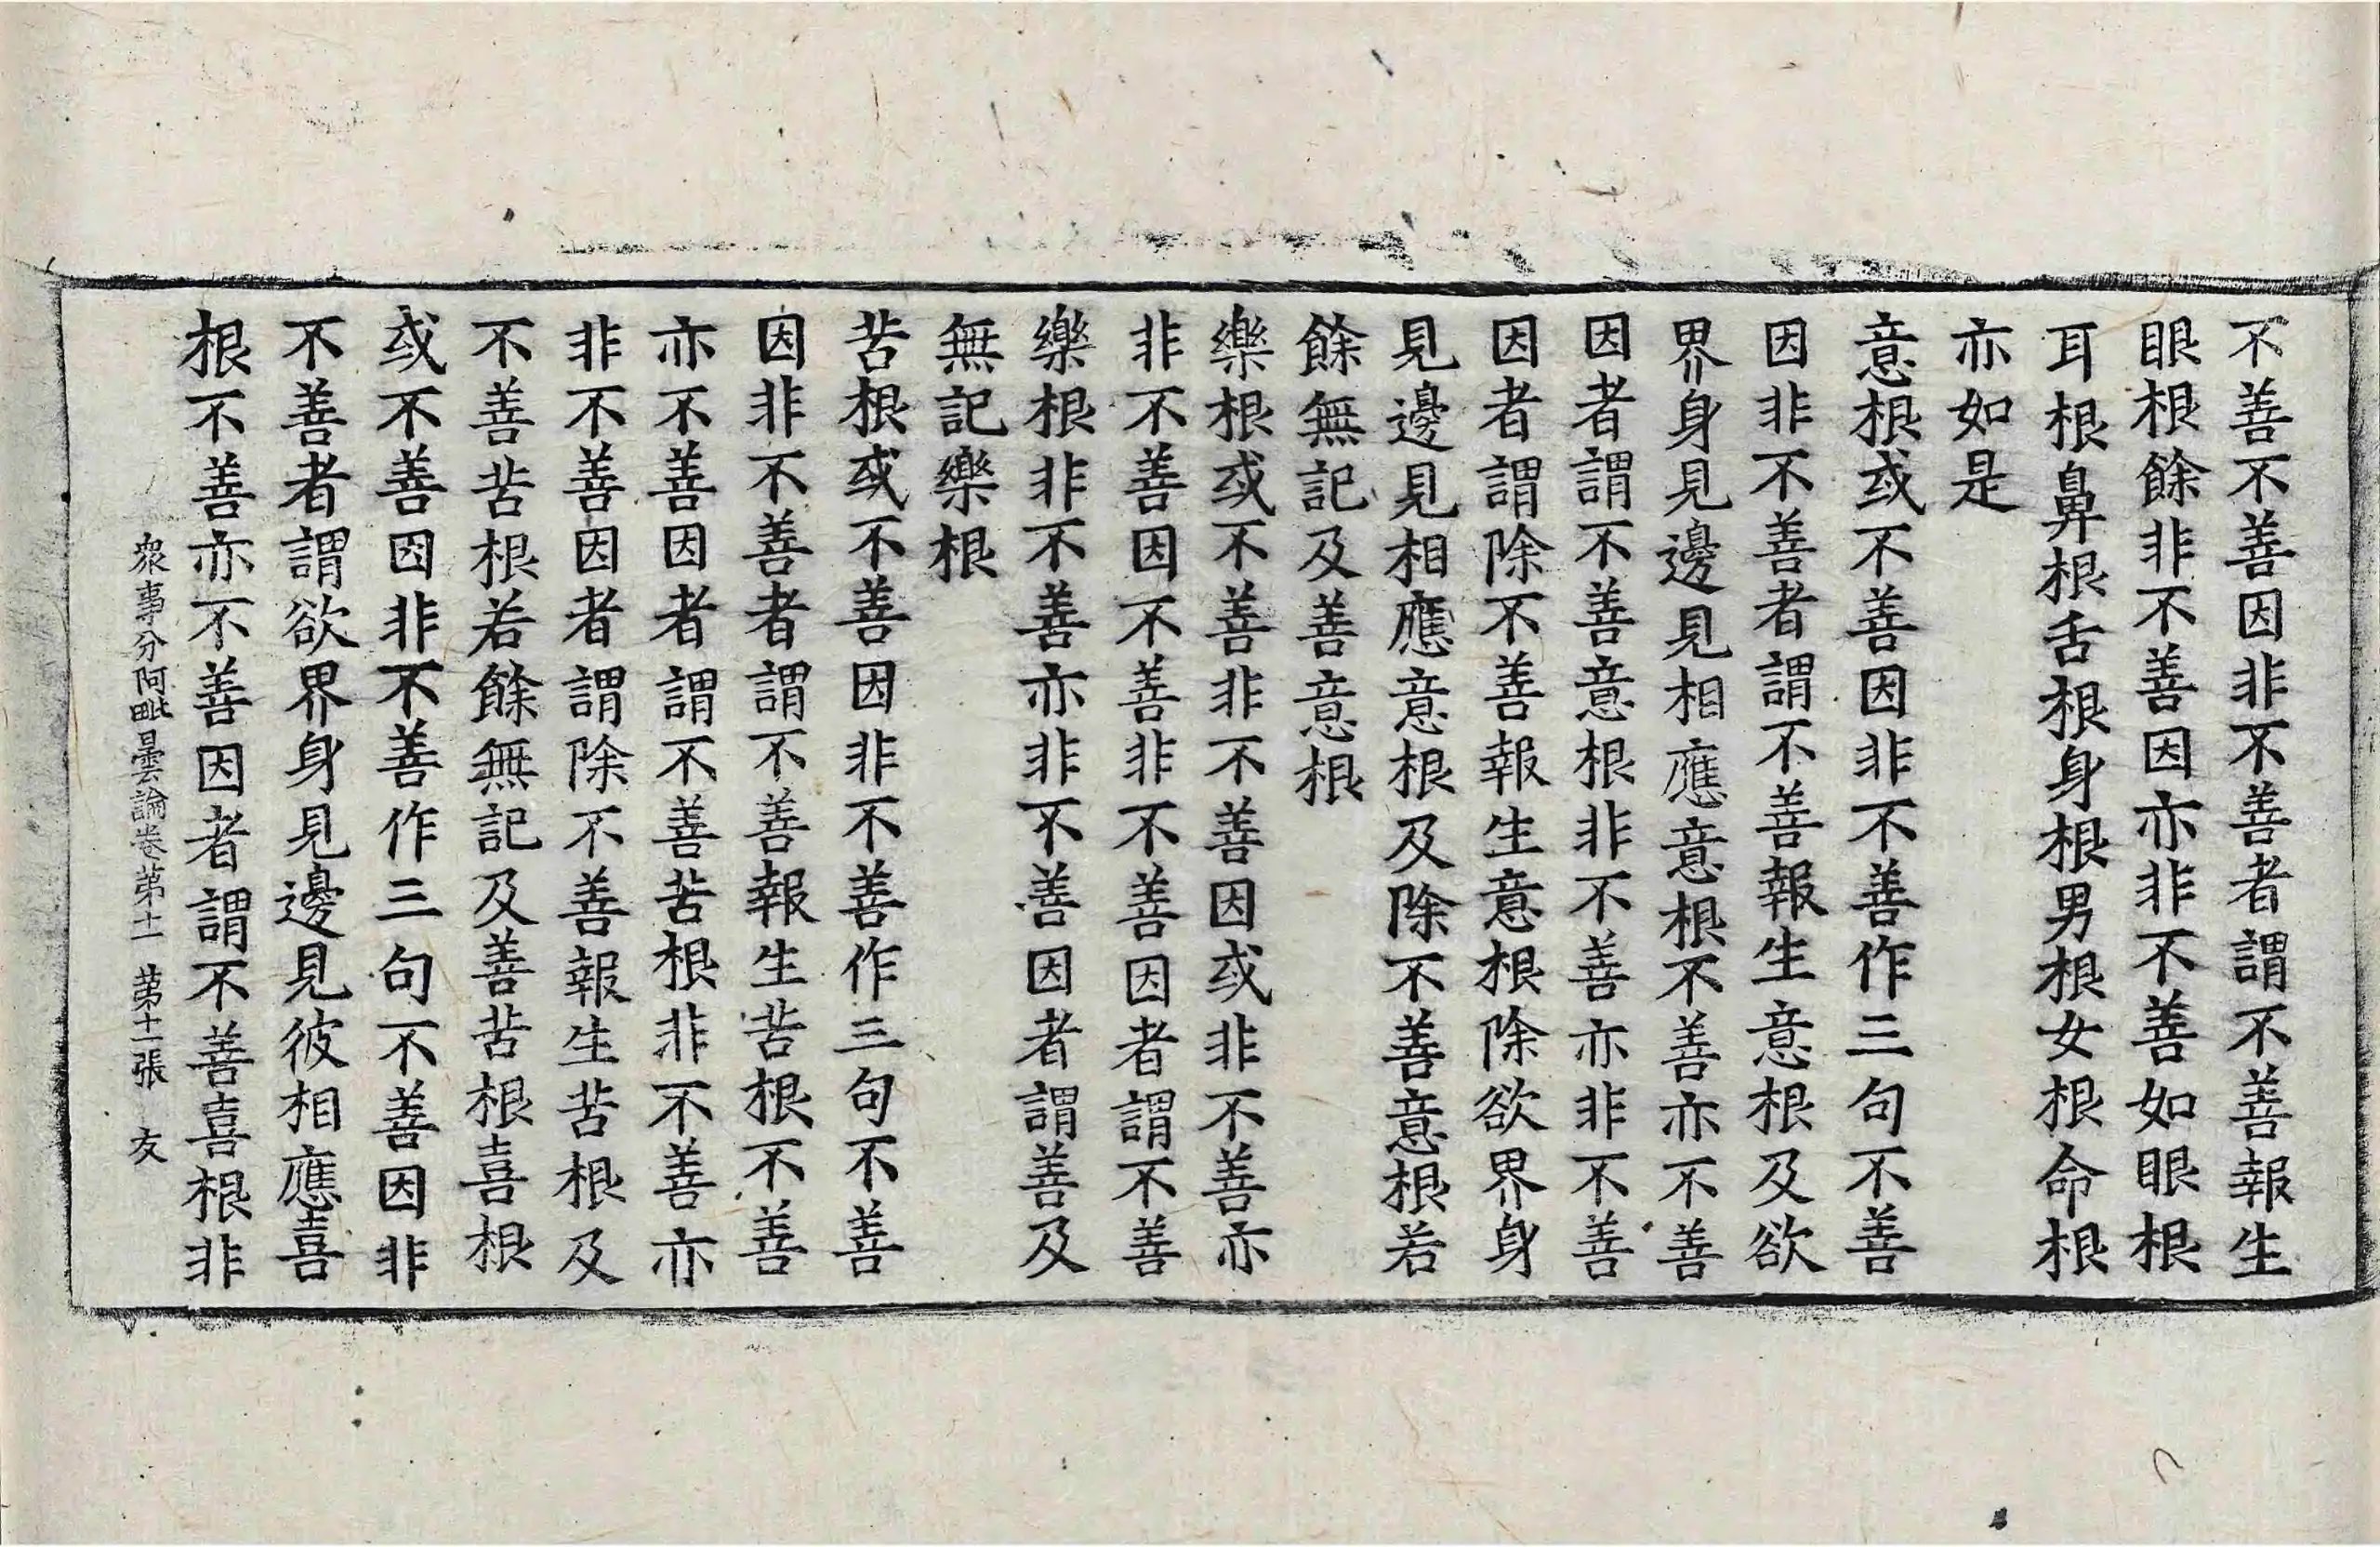 不善不善因非不善者謂不善報生
眼根餘非不善因亦非不善如眼根
耳根鼻根舌根身根男根女根命根
亦如是
意根或不善因非不善作三句不善
因非不善者謂不善報生意根及欲
界身見邊見相應意根不善亦不善
因者謂不善意根非不善亦非不善
因者謂除不善報生意根除欲界身
見邊見相應意根及除不善意根若
餘無記及善意根
樂根或不善非不善因或非不善亦
非不善因不善非不善因者謂不善
樂根非不善亦非不善因者謂善及
無記樂根
苦根或不善因非不善作三句不善
因非不善者謂不善報生苦根不善
亦不善因者謂不善苦根非不善亦
非不善因者謂除不善報生苦根及
不善苦根若餘無記及善苦根喜根
或不善因非不善作三句不善因非
不善者謂欲界身見邊見彼相應喜
根不善亦不善因者謂不善喜根非
衆事分阿毗曇論卷第十一 第十二張 友